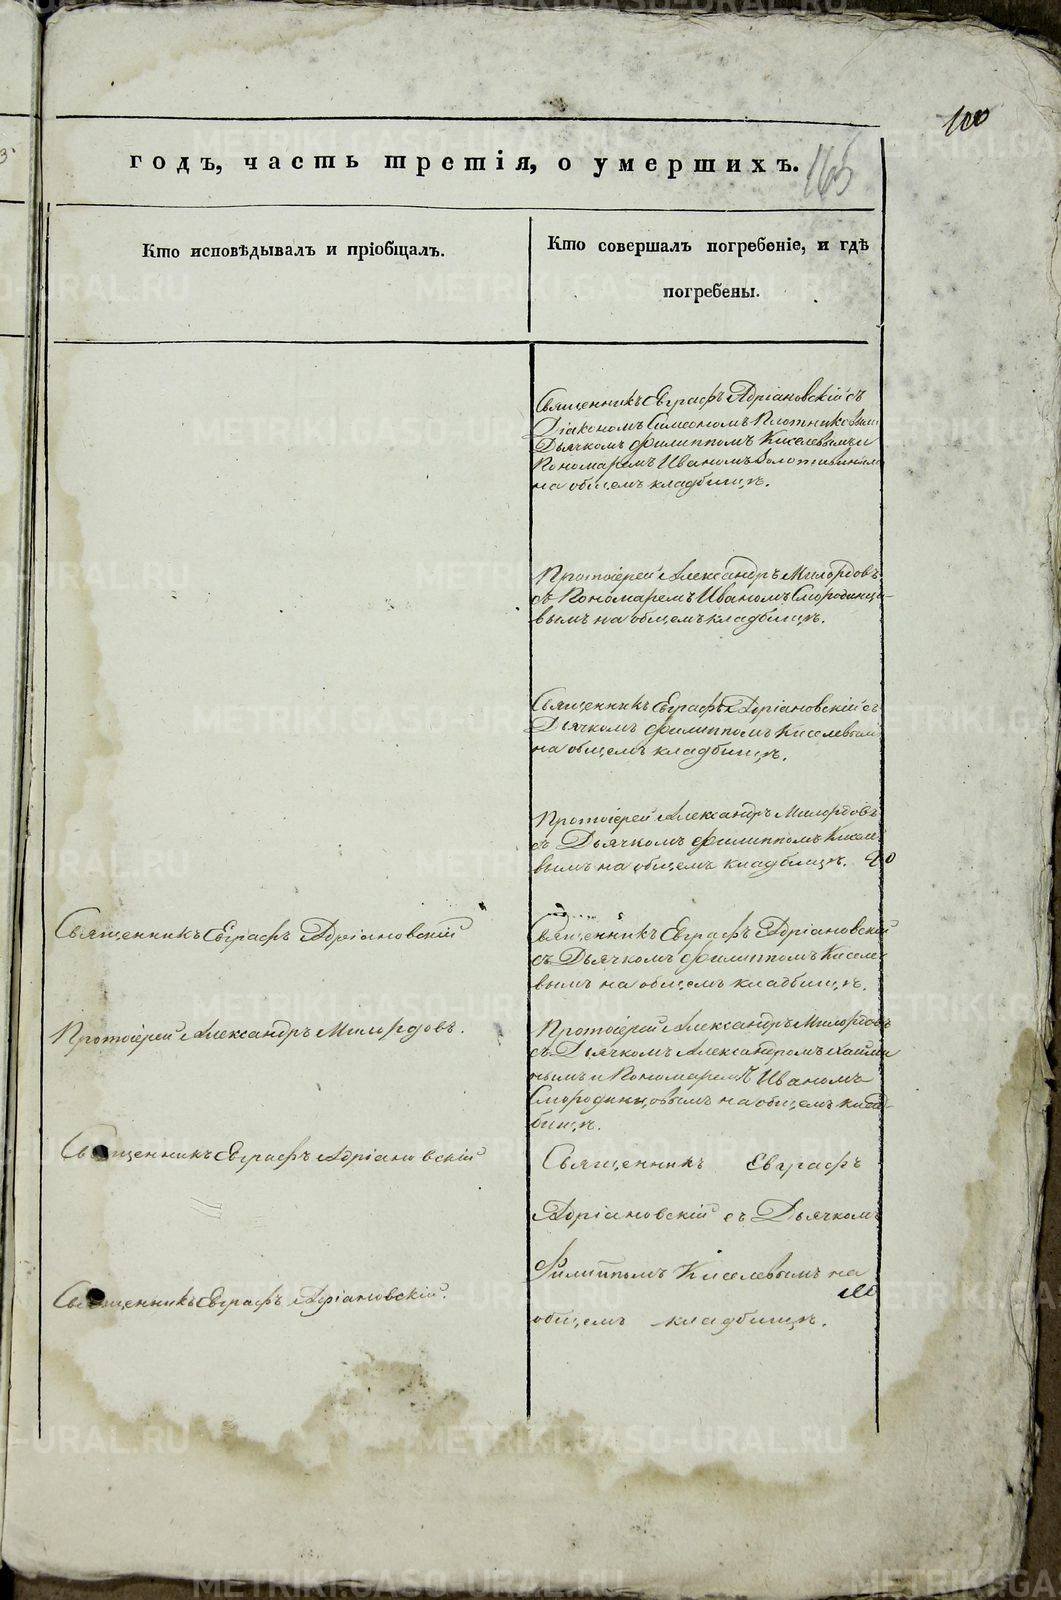 100
годъ, часть третія, о умершихъ.
165
Кто исповѣдывалъ и пріобщалъ.
Кто совершалъ погребеніе, и гдѣ
погребены.
Священникъ Евграфъ Адріановскій съ
Діакономъ Симеономъ Плотниковымъ
Дьячкомъ Филиппомъ Киселевымъ и
Пономаремъ Иваномъ
на общемъ кладбищѣ.
Протоіерей Александръ Милордовъ
съ Пономаремъ Иваномъ Смородинцо-
вымъ на общемъ кладбищѣ.
Священникъ Евграфъ Адріановскій съ
Дьячкомъ Филиппомъ Киселевымъ
на общемъ кладбищѣ.
Протоіерей Александръ Милордовъ
съ Дьячкомъ Филиппомъ Кисел
вымъ на общемъ кладбищѣ.
Священникъ Евграфъ Адріановскій
Священникъ Евграфъ Адріановскій
съ Дьячкомъ Филиппомъ Киселе
вымъ на общемъ кладбищѣ.
Протоіерей Александръ Милордовъ.
Протоіерей Александръ Милордовъ
съ Дьячкомъ Александромъ
нымъ и Пономаремъ Иваномъ
Смородинцовымъ на общемъ клад-
бищѣ.
Священникъ Евграфъ Адріановскій
Священникъ Евграфъ
Адріановскій съ Дьячкомъ
Филиппомъ Киселевымъ на
Священникъ Евграфъ Адріановскій.
общемъ кладбищѣ.
METRIKI.GASO-URAL.RU